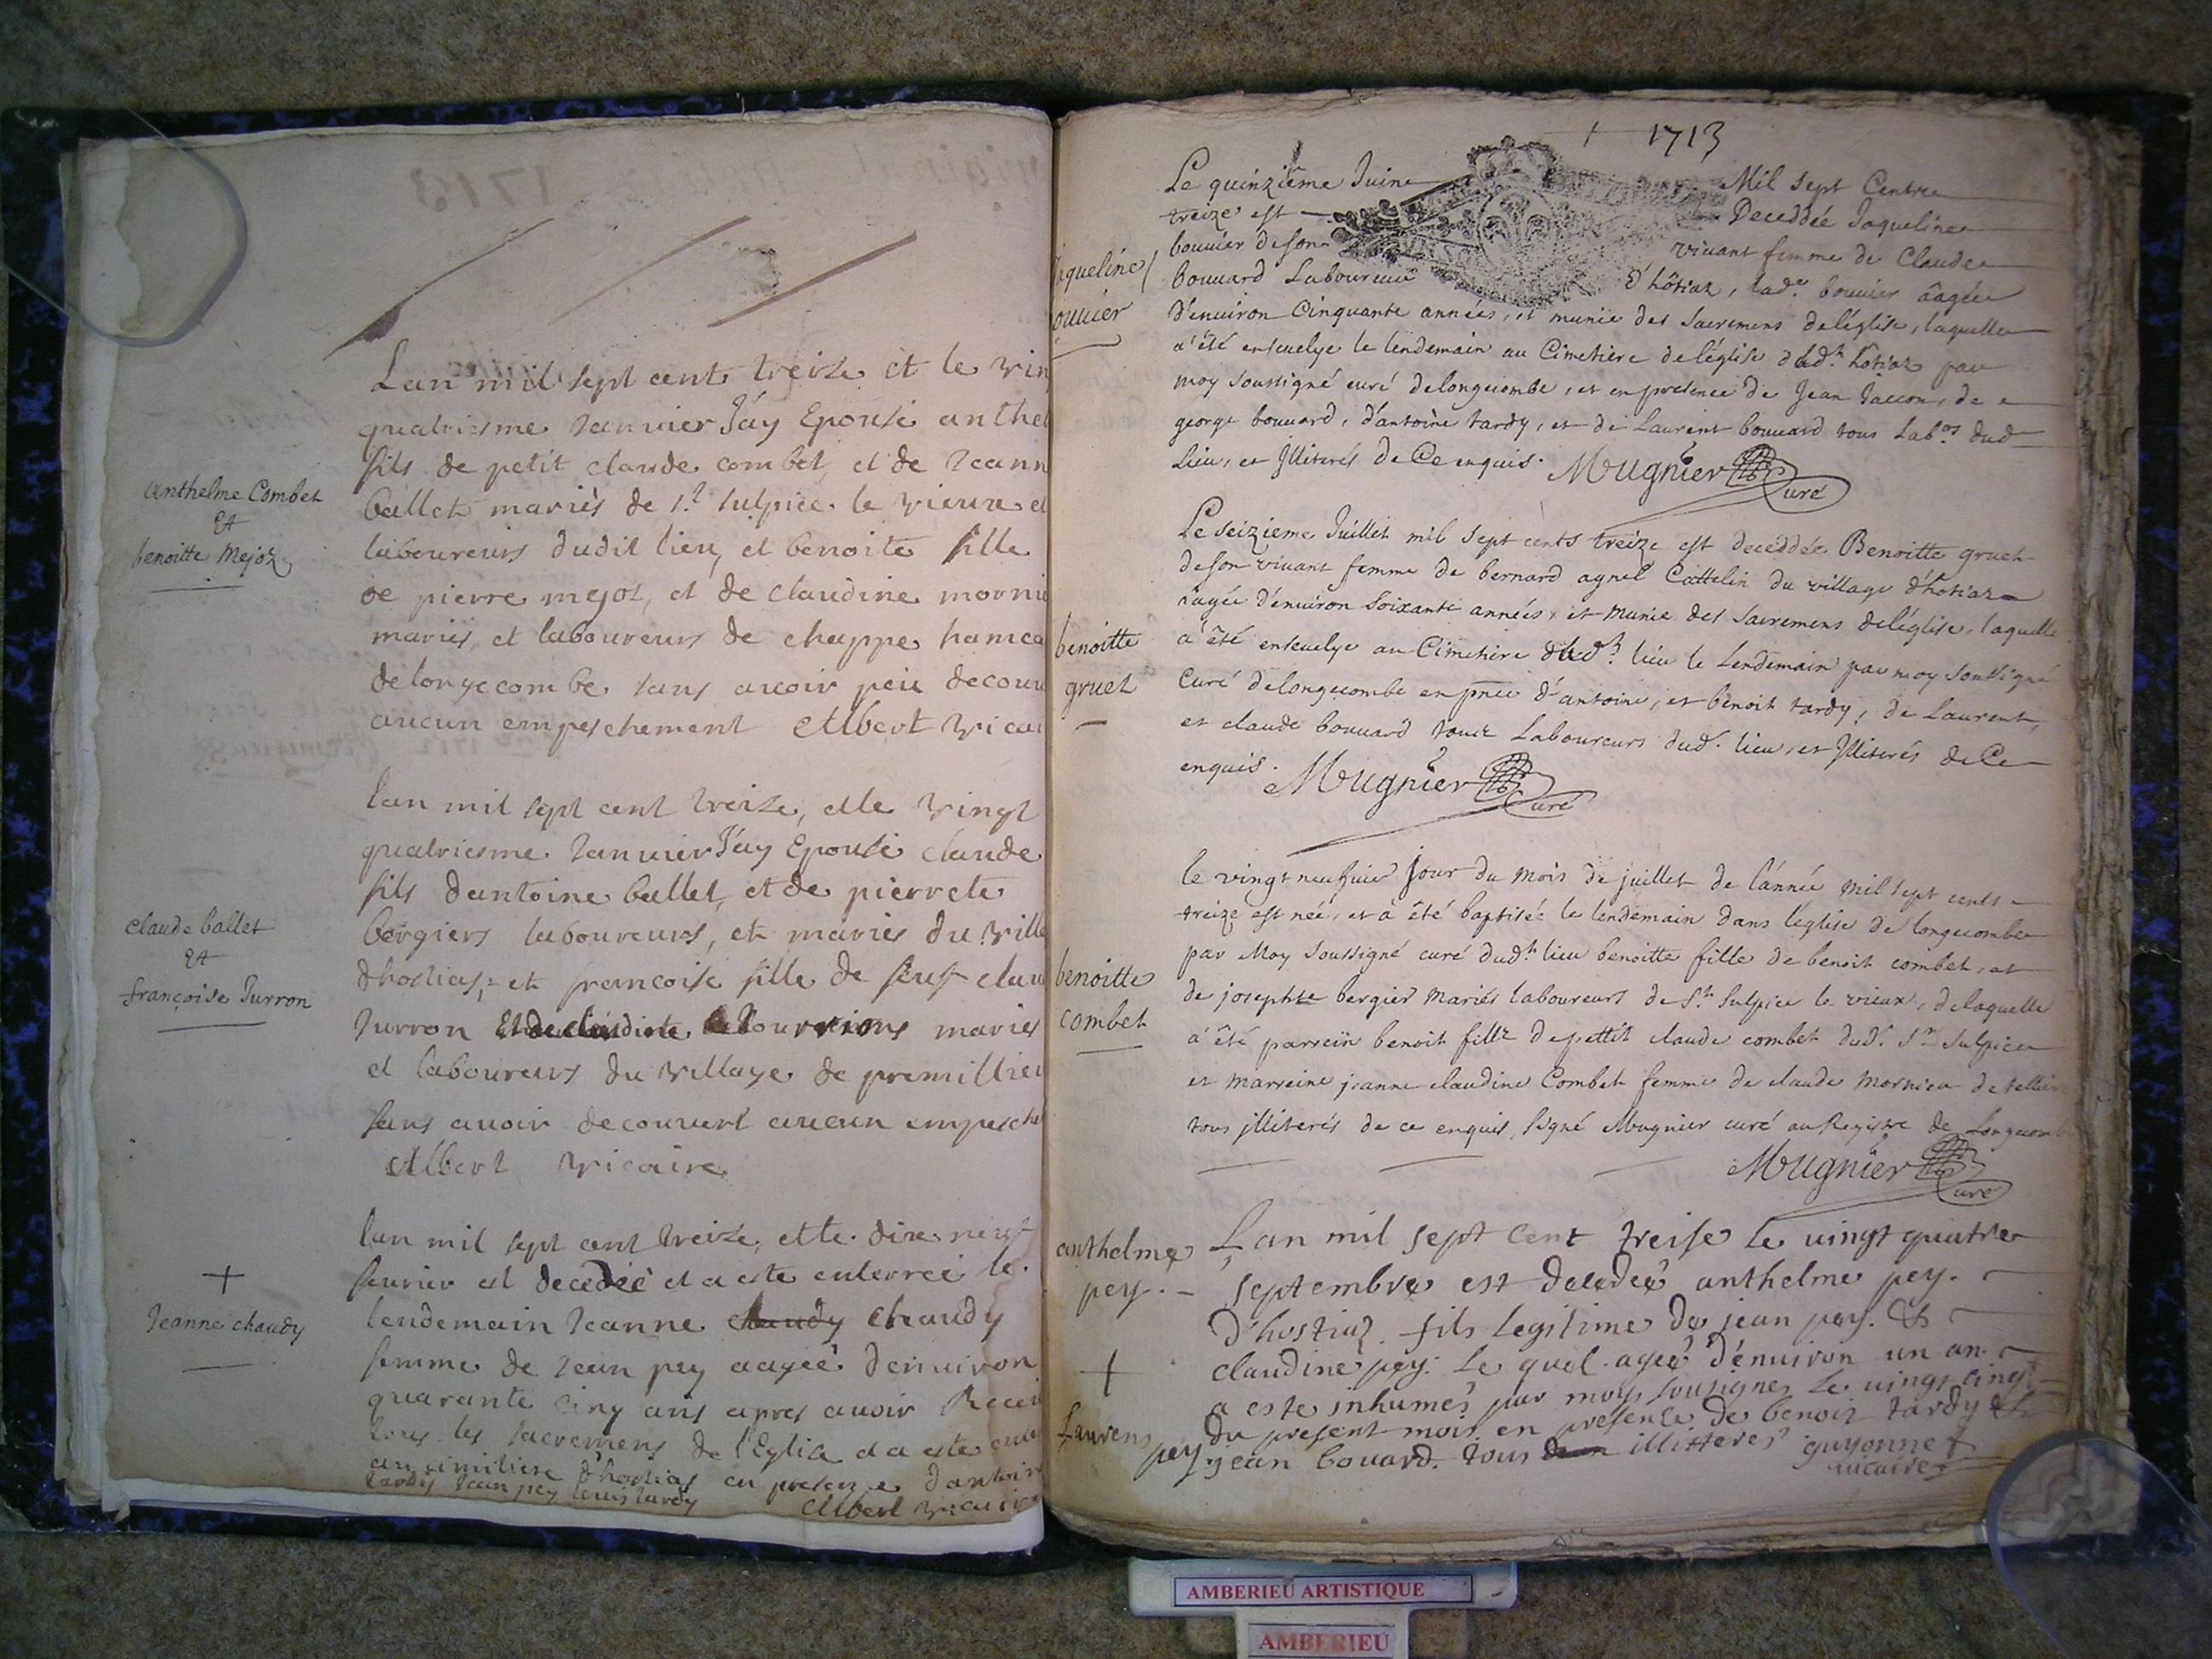 anthelme Combet
et
benoitte Mejoz
Lan mil sept cent treize et le vin
quatriesme Janvier J'ay Epousé anthel
fils de petit claude combet, et de Jeann
ballet mariés de st sulpice le vieux et
laboureurs dudit lieu, et benoite fille
de pierre mejoz, et de claudine mornie
mariés, et laboureurs de chappe hamea
de longecombe sans avoir peu decouv
aucun empeschement Albert vicai
claude ballet
et
françoise Jurron
lan mil sept cent treize, et le vingt
quatriesme Janvier J'ay Epousé claude
fils d'antoine ballet, et de pierrete
bergiers laboureurs, et mariés du ville
dhostias, et francoise fille de feuf clau
Jurron mariés
et laboureurs du village de premillieu
sans avoir decouvert aucun empesche
Albert vicaire
+
Jeanne chaudy
lan mil sept cent treize, et le dixe neuf
feuvrier est decedéé et a este enterreé le
lendemain Jeanne chaudy chaudy
femme de Jean pey aageé denuiron
quarante cinq ans apres avoir Receu
tous les sacremens de l'Eglise et a este
au cimitiere d'hostias en presence d'antoin
tardy Jean pey louis tardy
Albert vicaire
1713
Jaqueline
bouuier
Le quinziême Juin Mil sept Cents
treize est Deceddée Jaqueline
bouuier de son vivant femme de Claude
Bouuard Laboureur d'hôtiaz, lade bouuier âagée
d'enuiron Cinquante années, et munie des sacremens de l'église, laquelle
a été enseuelye le lendemain au Cimetiere de l'église dudt hotiaz par
moy soussigné curé de longecombe, et en presence de Jean Jaccon, de
george bouuard, d'antoine tardy, et de Laurent bouuard tous Labrs dud
Lieu, et Jlliterés de Ce enquis. Mugnier Curé
benoitte
gruet
Le seizieme Juillet mil sept cents treize est deceddée Benoitte gruet
de son vivant femme de bernard agnel Cattelin du village d'hotiaz
aagée d'enuiron soixante années, et munie des sacremens de l'église, laquelle
a été enseuelye au Cimetiere dudt lieu le Lendemain par moy soussigné
Curé de longecombe en pnce d'antoine, et benoit tardy, de Laurent,
et claude bouuard tous Laboureurs dud. lieu, et Jlliterés de Ce
enquis. Mugnier Curé
benoitte
combet
le vingt neufuieme jour du mois de juillet de l'année mil sept cents
treize est née, et a été baptisée le lendemain dans l'église de longecombe
par Moy soussigné curé dudt lieu benoitte fille de benoit combet, et
de josephte bergier mariés laboureurs de St Sulpice le vieux, de laquelle
a été parrein benoit fillz de pettit claude combet dud. St Sulpice
et marreine jeanne claudine Combet femme de claude Mornieu
tous jlliterés de ce enquis, signé Mugnier curé au Registre de Longecombe
Mugnier Curé
anthelme
pey.
+
Laurens
pey
Lan mil sept cent treise le vingt quatre
septembre est decedeé anthelme pey.
D'hostiaz fils legitime de jean pey. &
claudine pey. le quel ageé d'enuiron un an
a este inhumé par moy sousigner le vingt cinq
du present mois en presence de benoit tardy &
jean bouard. tous illitteres guyonnet
vicaire
AMBERIEU ARTISTIQUE
AMBERIEU